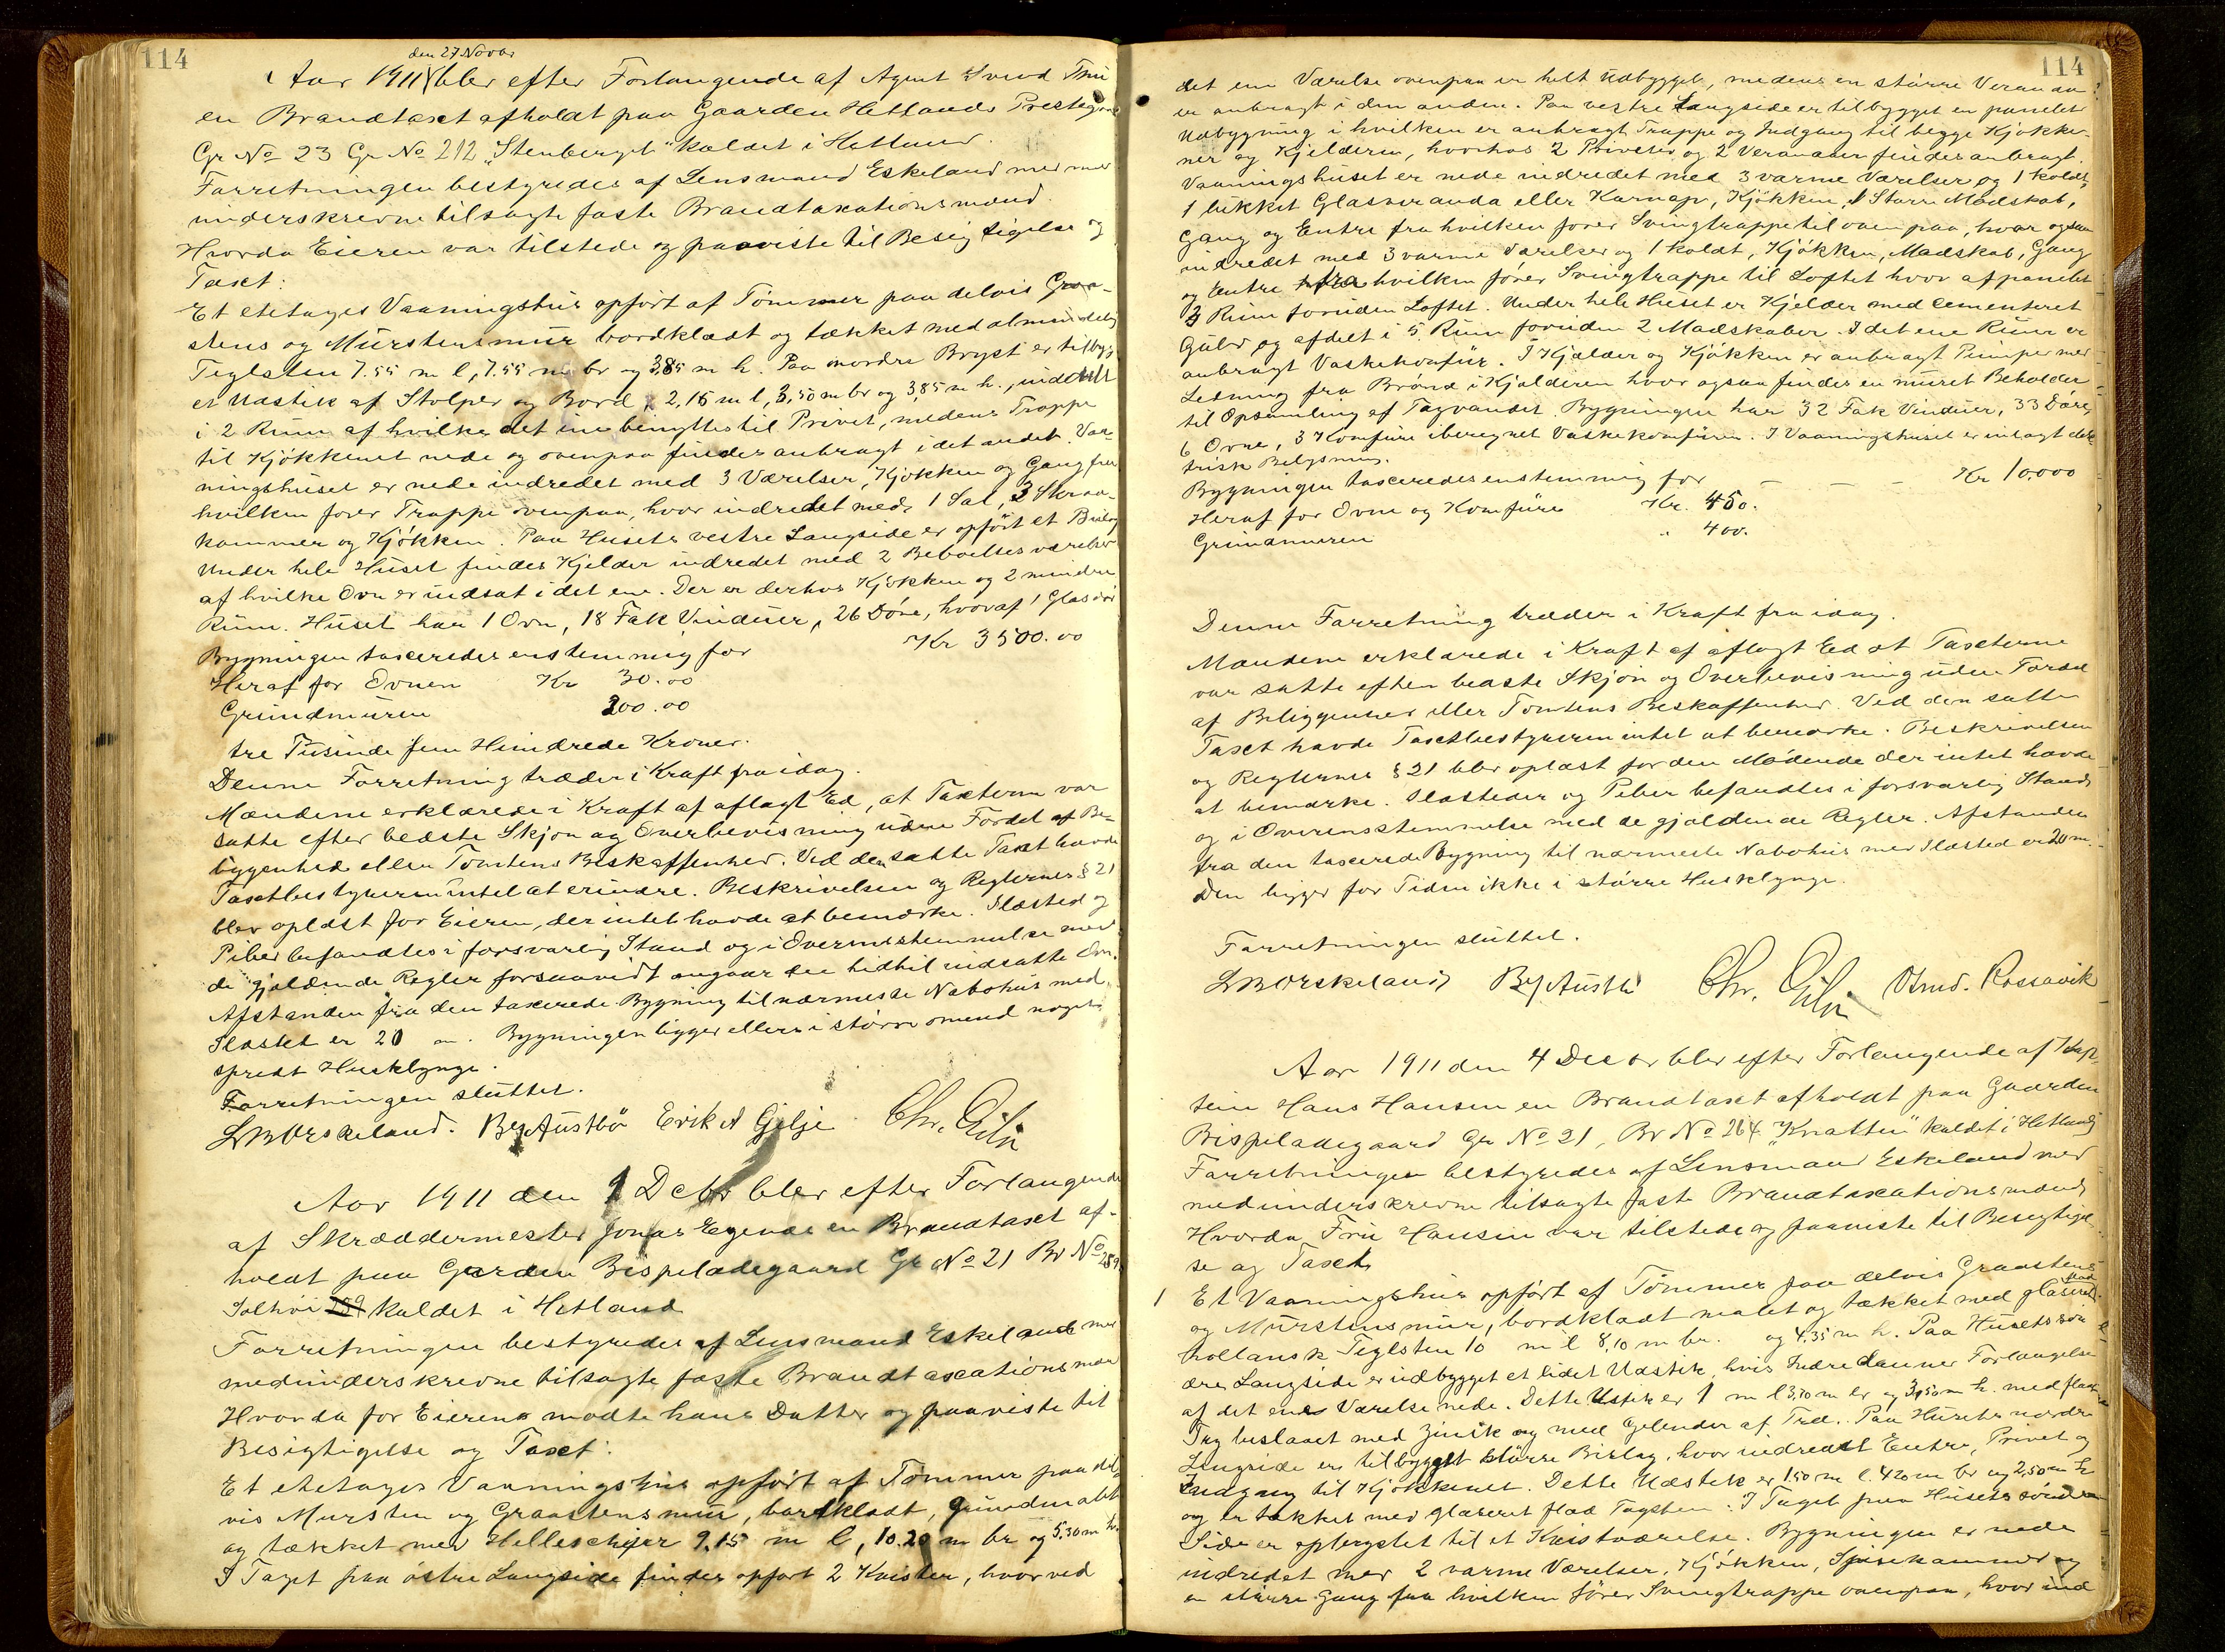 114
den 27 Novbr
Aar 1911 blev efter Forlangende af Agent Svend Thu
en Brandtaxt afholdt paa Gaarden Hetlands Prestegaard
Gr No 23 Gr No 212 "Stenberget" kaldet i Hetland.
Forretningen bestyredes af Lensmand Eskeland med med
underskrevne tilsagte faste Brandtaxationsmænd.
Hvorda Eieren var tilstede og paaviste til Besigtigelse og
Taxt:
Et etetages Vaaningshus opført af Tømmer paa delvis Graa-
stens og Murstensmur bordklædt og tækket med almindelig
Teglsten 7.55 m l, 7.55 m br og 3,85 m h. Paa nordre Bryst er tilbyg
et Udstik af Stolper og Bord, 2,15 m l, 3,50 m br og 3,85 m h., inddelt
i 2 Rum af hvilke det ene benyttes til Privet, medens Trappe
til Kjøkkenet nede og ovenpaa findes anbragt i det andet. Vaa-
ningshuset er nede indredet med 3 Værelser, Kjøkken og Gang fra
hvilken fører Trappe ovenpaa, hvor indredet med 1 Sal, 3 Skraa-
kammer og Kjøkken. Paa Husets vestre Langside er opført et Bislag
Under hele Huset findes Kjelder indredet med 2 Beboelsesværelser
af hvilke Ovn er indsat i det ene. Der er derhos Kjøkken og 2 mindre
Rum. Huset har 1 Ovn, 18 Fak Vinduer, 26 Døre, hvoraf 1 Glasdør
Bygningen taxeredes enstemmig for Kr 3500.00
Heraf for Ovnen Kr 30.00
Grundmuren 200.00
tre Tusinde fem Hundrede Kroner.
Denne Forretning træder i Kraft fra idag.
Mændene erklærede i Kraft af aflagt Ed, at Taxterne var
satte efter bedste Skjøn og Overbevisning uden Fordel af Be-
liggenhed eller Tomtens Beskaffenhed. Ved den satte Taxt havde
Taxtbestyreren intet at erindre. Beskrivelsen og Reglernes § 21
blev oplæst for Eieren, der intet havde at bemærke. Ildsted og
Piber befandtes i forsvarlig Stand og i Overensstemmelse med
de gjældende Regler forsaavidt angaar den hidtil indsatte Ovn.
Afstanden fra den taxerede Bygning til nærmeste Nabohus med
Ildsted er 20 m. Bygningen ligger ellers i større omend noget
spredt Husklynge.
Forretningen sluttet.
LMOrskeland. BejAustbø Erik A Gilje Chr. Gilje
Aar 1911 den 1 Debr blev efter Forlangende
af Skræddermester Jonas Egenes en Brandtaxt af-
holdt paa Gaarden Bispeladegaard Gr No 21 Br No 289
Solhøi 289 kaldet i Hetland
Forretningen bestyredes af Lensmand Eskeland med
medunderskrevne tilsagte faste Brandtaxationsmæn
Hvorda for Eieren mødte hans Datter og paaviste til
Besigtigelse og Taxt:
Et etetages Vaaningshus opført af Tømmer paa del-
vis Mursten og Graastensmur, bordklædt, grundmalet
og tækket med Helleschifer 9.15 m l, 10.20 m br og 5.30 m h.
I Taget paa østre Langside findes opført 2 Kvister, hvorved
114
det ene Værelse ovenpaa er helt udbygget, medens en større Veranda
er anbragt i den anden. Paa vestre Langside er tilbygget en panelet
Udbygning i hvilken er anbragt Trappe og Indgang til begge Kjøkke-
ner og Kjelderen, hvorhos 2 Priveter og 2 Verandaer findes anbragt.
Vaaningshuset er nede indredet med 3 varme Værelser og 1 koldt,
1 lukket Glasveranda eller Karnap, Kjøkken, 1 Større Madskab,
Gang og Entre fra hvilken fører Svingtrappe til ovenpaa, hvor ogsaa
indredet med 3 varme Værelser og 1 koldt, Kjøkken, Madskab, Gang
og Entre fra hvilken fører Svingtrappe til Loftet hvor afpanelet
3 Rum foruden Loftet. Under hele Huset er Kjelder med cementeret
Gulv og afdelt i 5 Rum foruden 2 Madskaber. I det ene Rum er
anbragt Vaskekomfur. I Kjelder og Kjøkken er anbragt Pumpe med
Ledning fra Brønd i Kjælderen hvor ogsaa findes en muret Beholder
til Opsamling af Tagvandet. Bygningen har 32 Fak Vinduer, 33 Døre,
6 Ovne, 3 Komfure iberegnet Vaskekomfuren. I Vaaningshuset er indlagt elek-
trisk Belysning.
Bygningen taxeredes enstemmig for - - - Kr 10.000
Heraf for Ovne og Komfure Kr. 450.
Grundmuren " 400.
Denne Forretning træder i Kraft fra idag.
Mændene erklærede i Kraft af aflagt Ed at Taxterne
var satte efter bedste Skjøn og Overbevisning uden Fordel
af Beliggenhed eller Tomtens Beskaffenhed. Ved den satte
Taxt havde Taxtbestyreren intet at bemærke. Beskrivelsen
og Reglernes § 21 blev oplæst for den Mødende der intet havde
at bemærke. Ildsteder og Piber befandtes i forsvarlig Stand
og i Overensstemmelse med de gjældende Regler. Afstanden
fra den taxerede Bygning til nærmeste Nabohus med Ildsted er 20 m.
Den ligger for Tiden ikke i større Husklynge.
Forretningen sluttet.
LMOrskeland BejAustbø Chr. Gilje Osmd. Rossavik
Aar 1911 den 4 Decbr blev efter Forlangende af Kap-
tein Hans Hansen en Brandtaxt afholdt paa Gaarden
Bispeladegaard Gr No 21, Br No 264 "Knatten" kaldet i Hetland
Forretningen bestyredes af Lensmand Eskeland med
medunderskrevne tilsagte faste Brandtaxationsmænd
Hvorda Fru Hansen var tilstede og paaviste til Besigtigel-
se og Taxt
1 Et Vaaningshus opført af Tømmer paa delvis Graastens
og Murstensmur, bordklædt malet og tækket med glaseret
hollansk Teglsten 10 m l 8,10 m br. og 4,35 m h. Paa Husets søn-
dre Langside er udbygget et lidet Udstik, hvis Indre danner Forlængelse
af det ene Værelse nede. Dette Udstik er 1 m l 3,70 m br og 3,50 m h. med fladt
Tag beslaaet med Zink og med Gelender af Træ. Paa Husets nordre
Langside er tilbygget større Bislag, hvor indredet Entre, Privet og
Indgang til Kjøkkenet. Dette Udstik er 1,50 m l. 4,20 m br og 2,50 m h
og er tækket med glaseret flad Tagsten. I Taget paa Husets søndre
Side er opbrystet til et Kvistværelse. Bygningen er nede
indredet med 2 varme Værelser, Kjøkken, Spisekammer og
en større Gang fra hvilken fører Svingtrappe ovenpaa, hvor ind